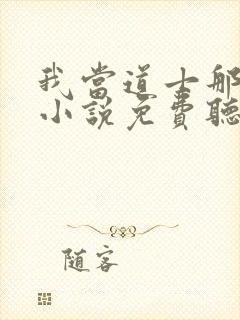 我當道士那
小說免費聽
随客